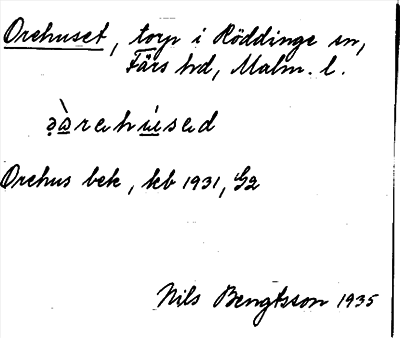 Orehuset, torp i Röddinge sn,
Färs hd, Malm. l.
Orehus bek, kb 1931, G2
Nils Bengtsson 1935